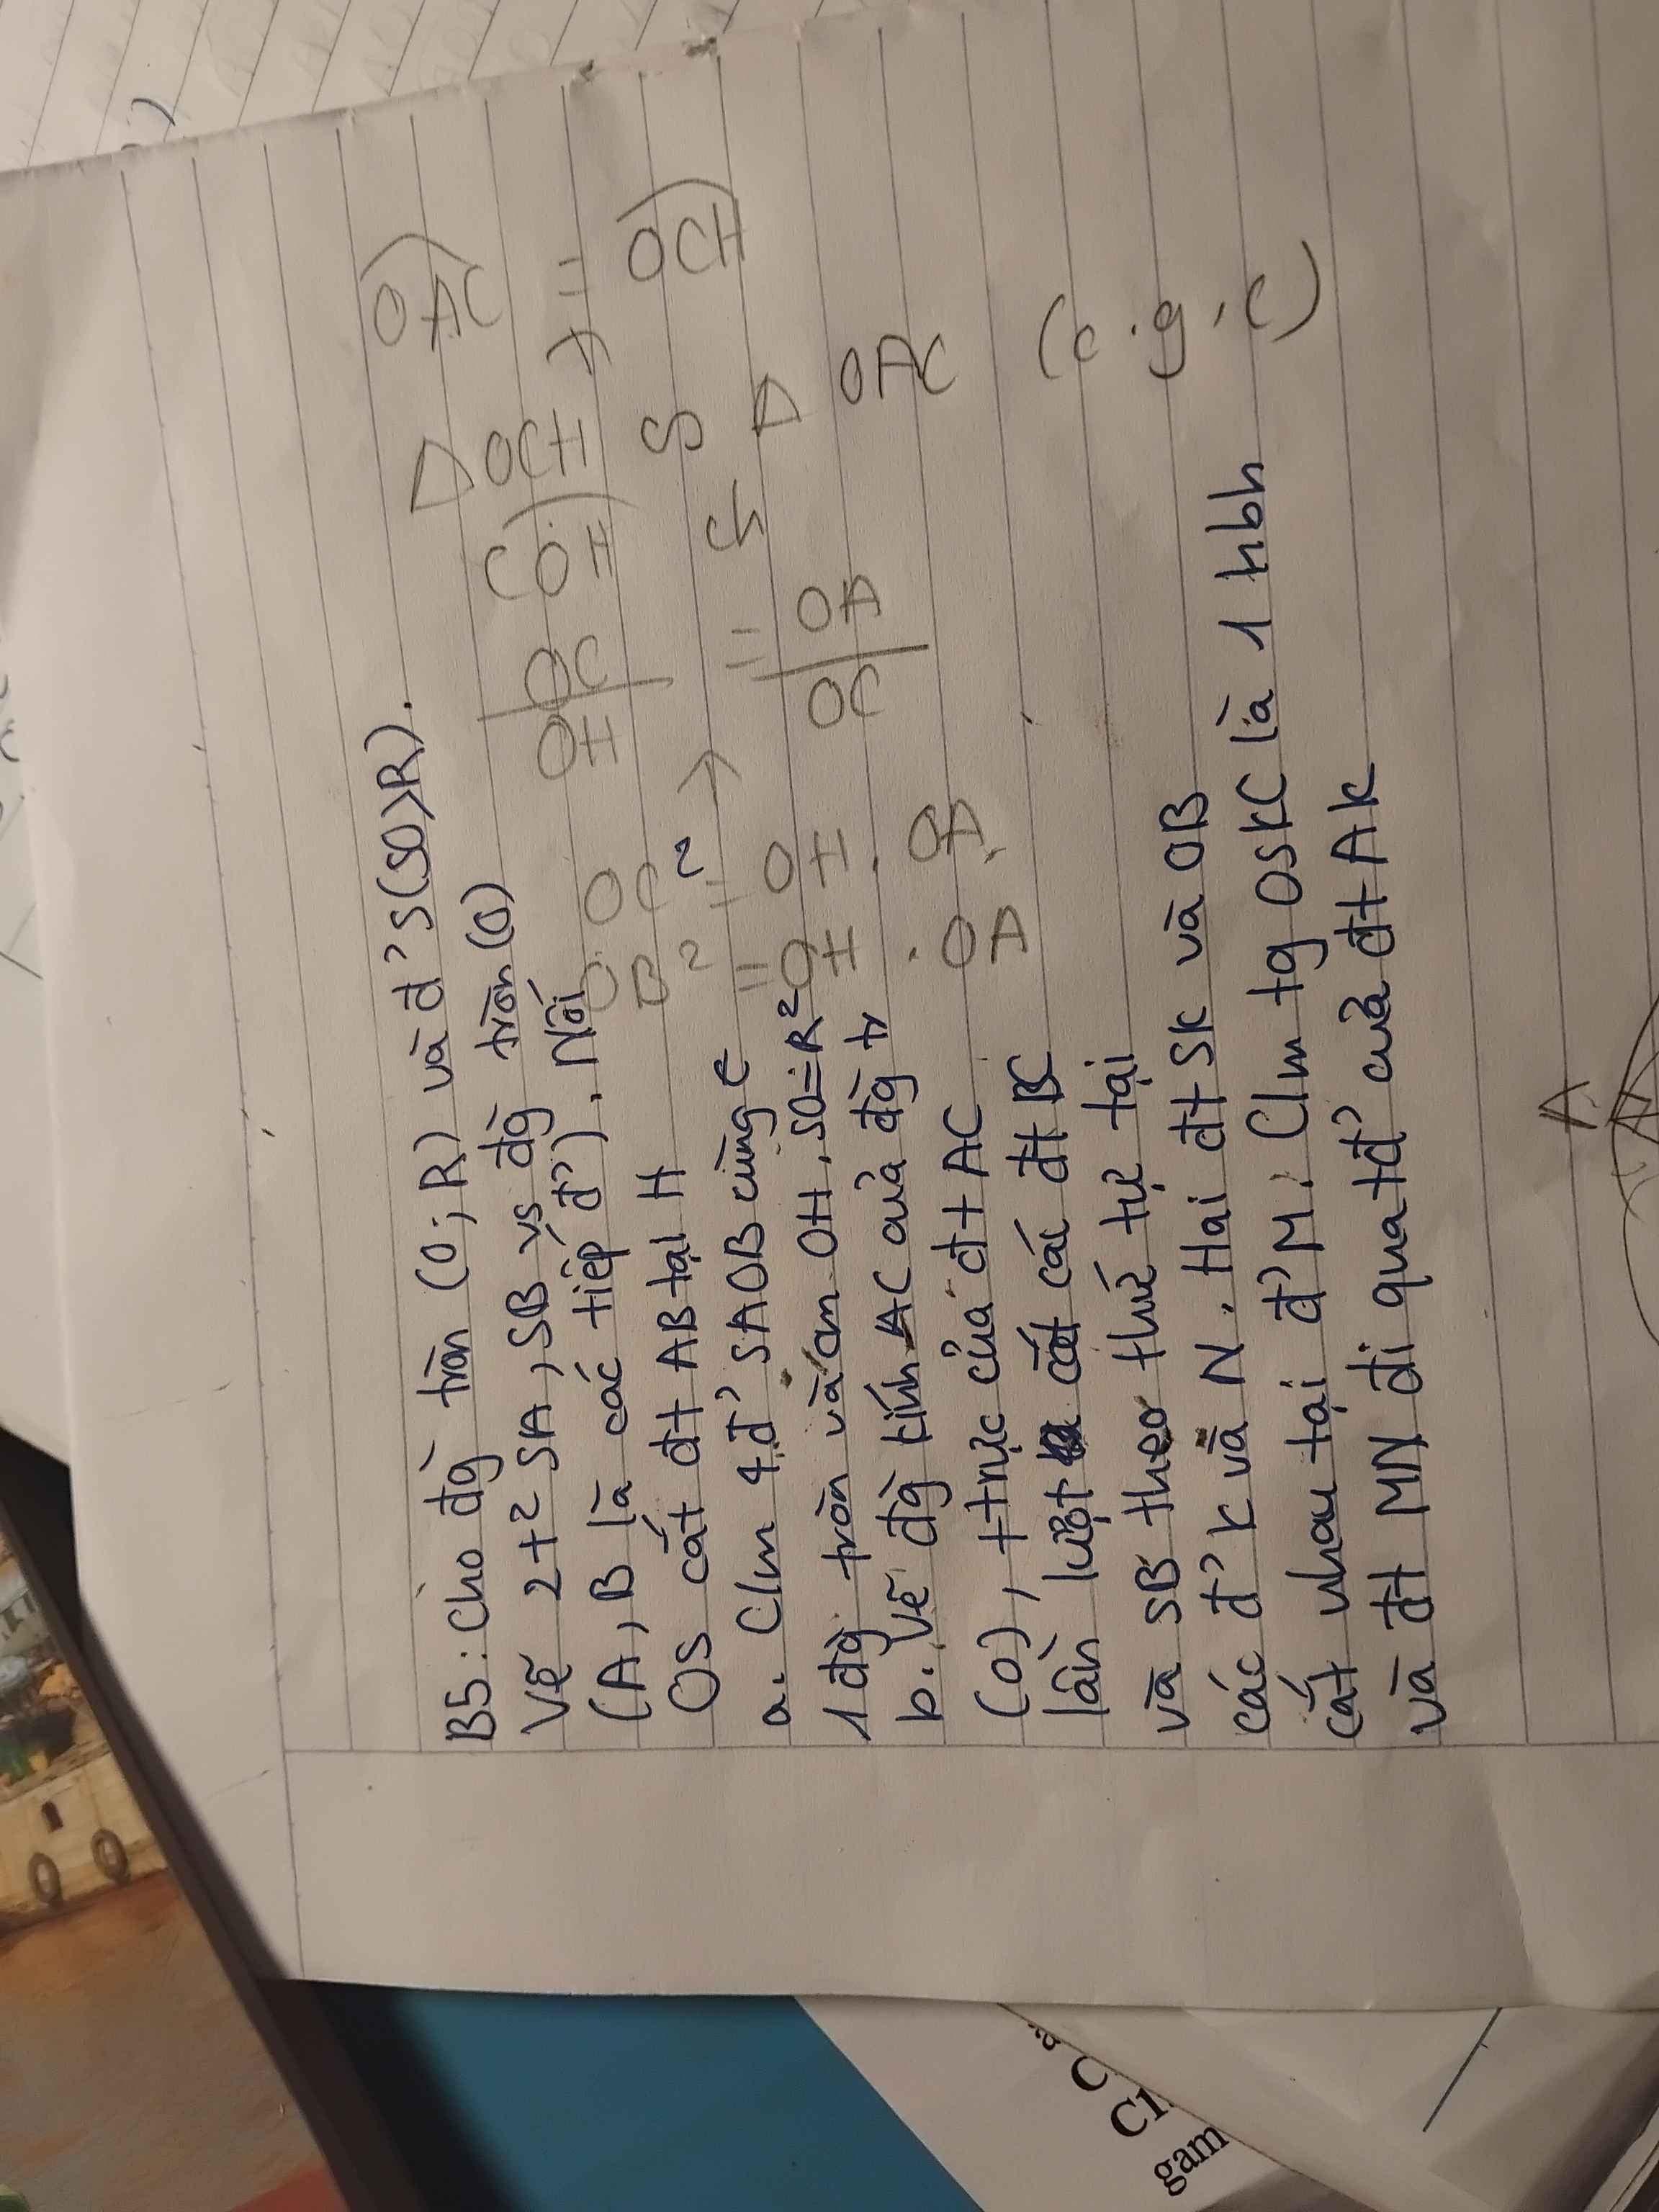 B5: Cho đg̀ tròn (O; R) và đ' S(SO>R).
Vẽ 2 t² SA, SB vs đg̀ tròn (O)
(A, B là các tiếp đ'). Nối
OS cắt đt AB tại H
a. C/m 4 đ' SAOB cùng ϵ
1 đg̀ tròn và cm OH.SO=R²
b. Vẽ đg̀ kính AC của đg̀ tr
(O), ttrực của đt AC
lần lượt cắt các đt BC
và SB theo thứ tự tại
các đ' K và N. Hai đt SK và OB
cắt nhau tại đ' M. C/m tg OSKC là 1 hbh
và đt MN đi qua tđ' của đt AK
OAC = OCH
ΔOCH ᔕ Δ OAC (c.g.c)
COH ch
OC/OH = OA/OC
OC² = OH. OA.
OB² = OH . OA
A
C
C1
gam